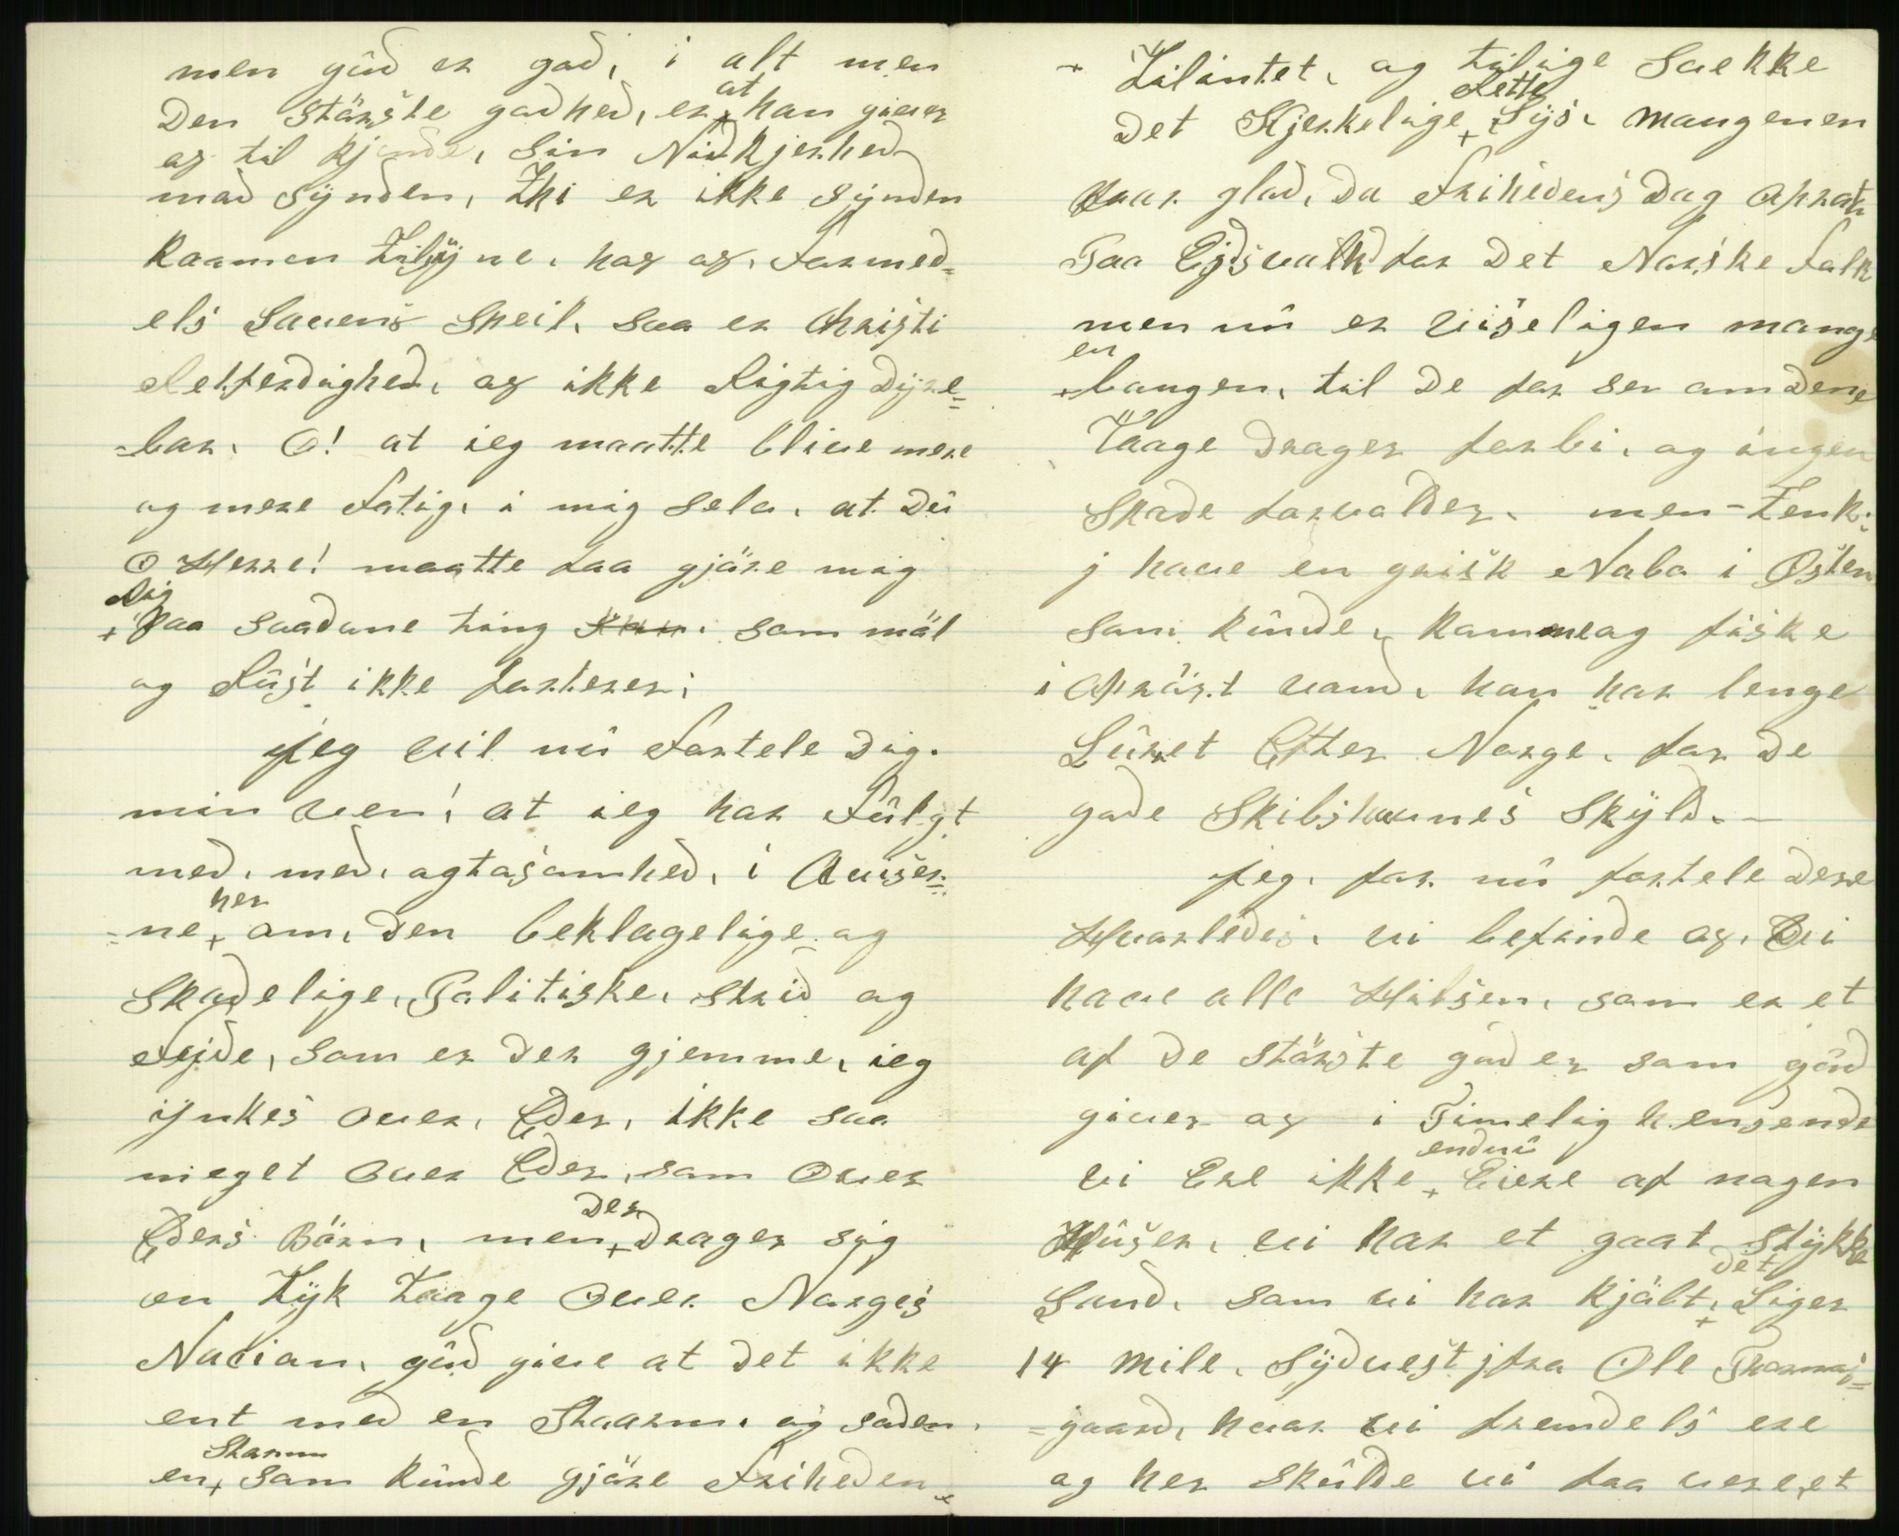 men gûd er god, i alt men
Den störste godhed, er + at han giver
os til kjende, sin Nidkjerhed
mod synden, Thi er ikke synden
kommen Tilsyne, hos os, Formed=
els Lovens Speil, saa er Christi
Retferdighed, os ikke Rigtig Dyre=
=bar. O! at ieg maatte blive mere
og mere Fatig, i mig selv, at Dû
O Herre! maatte faa gjöre mig
+ Rig paa saadane ting som möl
og Rûst ikke forterer;
Jeg vil nû Fortele Dig.
min ven! at ieg har Fûlgt
med, med, agtasomhed, i Aviser=
=ne + her om, den beklagelige og
Skadelige, Politiske, strid og
Fejde, som er der gjemme, ieg
ynkes over, Eder, ikke saa
meget over Eder, som over
Eders Börn, men + der drager sig
en Tyk Taage over Norges
Nation, gûd give at det ikke
ent med en Stoorm, og soden
en + Storm som kûnde gjöre Friheden
+ Tilintet, og tilige Svekke
Det Kjerkelige + Rette Lys, mangenen
vaar glad, da Frihedens Dag oprat
Paa Ejdsvold for Det Norske Folk
men nû er viiseligen mange
+ en bangen, til De for ser om dene
Taage Drager forbi, og ingen
Skade forvolder, men - Tenk
j have en grisk Nabo i Østen
som kûnde, kamme og fiske
i Oprört vand, han har lenge
Lûret Efter Norge, for De
gode Skibshavnes Skyld. -
Jeg, for nû fortele Dere
Hvorledes, vi befinde os, Vi
have alle Hilsen, som er et
af De störste goder som gûd
giver os i Timelig hensende
vi Ere ikke + endnû Eiere af nogen
Hûser, vi har et goot stykke
Land, som vi har kjöbt, + det Liger
14 Mile, Sydvest jfra Ole Thormos=
=gaard, hvor vi fremdels ere
og her skûlde vi faa vere, et